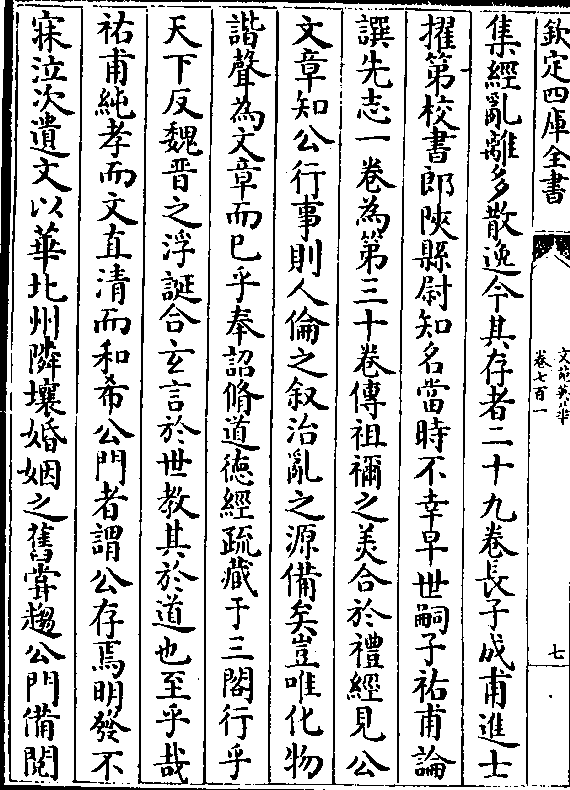 欽定四庫全書
文苑英華
卷七百一
七
集經亂離多散逸今其存者二十九卷長子成甫進士
擢第校書郎陜縣尉知名當時不幸早世嗣子祐甫論
譔先志一卷為第三十卷傳祖禰之美合於禮經見公
文章知公行事則人倫之叙治亂之源備矣豈唯化物
諧聲為文章而已乎奉詔脩道德經疏藏于三閣行乎
天下反魏晉之浮誕合𤣥言於世教其於道也至乎哉
祐甫純孝而文直清而和希公門者謂公存焉明發不
寐泣次遺文以華北州隣壤婚姻之舊嘗趨公門備閱